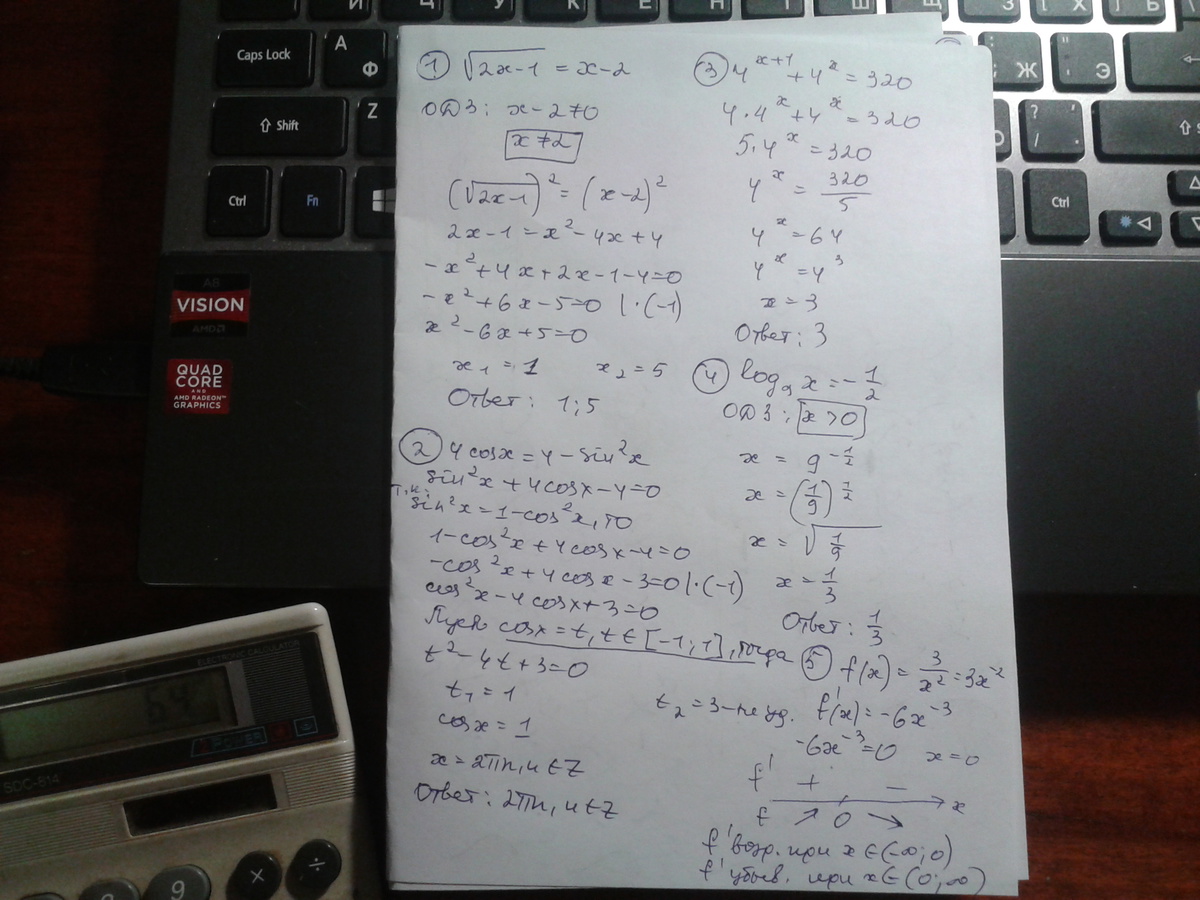 Caps Lock
А
Ф
⇧ Shift
Z
Ctrl
Fn
Ж
Э
?
/
Ctrl
A8
VISION
AMD
QUAD
CORE
AND
AMD RADEON™
GRAPHICS
ELECTRONIC CALCULATOR
64
POWER
SDC-814
9
×
÷
① √(2x-1) = x-2
ОДЗ: x-2≠0
x≠2
(√(2x-1))² = (x-2)²
2x-1 = x²-4x+4
-x²+4x+2x-1-4=0
-x²+6x-5=0 |·(-1)
x²-6x+5=0
x₁ = 1 x₂ = 5
Ответ: 1; 5
② 4cosx = 4 - sin²x
sin²x + 4cosx - 4 = 0
т.к. sin²x = 1-cos²x, то
1-cos²x + 4cosx - 4 = 0
-cos²x + 4cosx - 3 = 0 |·(-1)
cos²x - 4cosx + 3 = 0
Пусть cosx = t, t∈[-1; 1], тогда
t² - 4t + 3 = 0
t₁ = 1 t₂ = 3 - не уд.
cosx = 1
x = 2πn, n∈Z
Ответ: 2πn, n∈Z
③ 4^(x+1) + 4^x = 320
4·4^x + 4^x = 320
5·4^x = 320
4^x = 320/5
4^x = 64
4^x = 4³
x = 3
Ответ: 3
④ log₉ x = -1/2
ОДЗ: x > 0
x = 9^(-1/2)
x = (1/9)^(1/2)
x = √(1/9)
x = 1/3
Ответ: 1/3
⑤ f(x) = 3/x² = 3x⁻²
f'(x) = -6x⁻³
-6x⁻³ = 0 x = 0
f' + - x
f ↗ 0 ↘
f' возр. при x∈(-∞; 0)
f' убыв. при x∈(0; ∞)